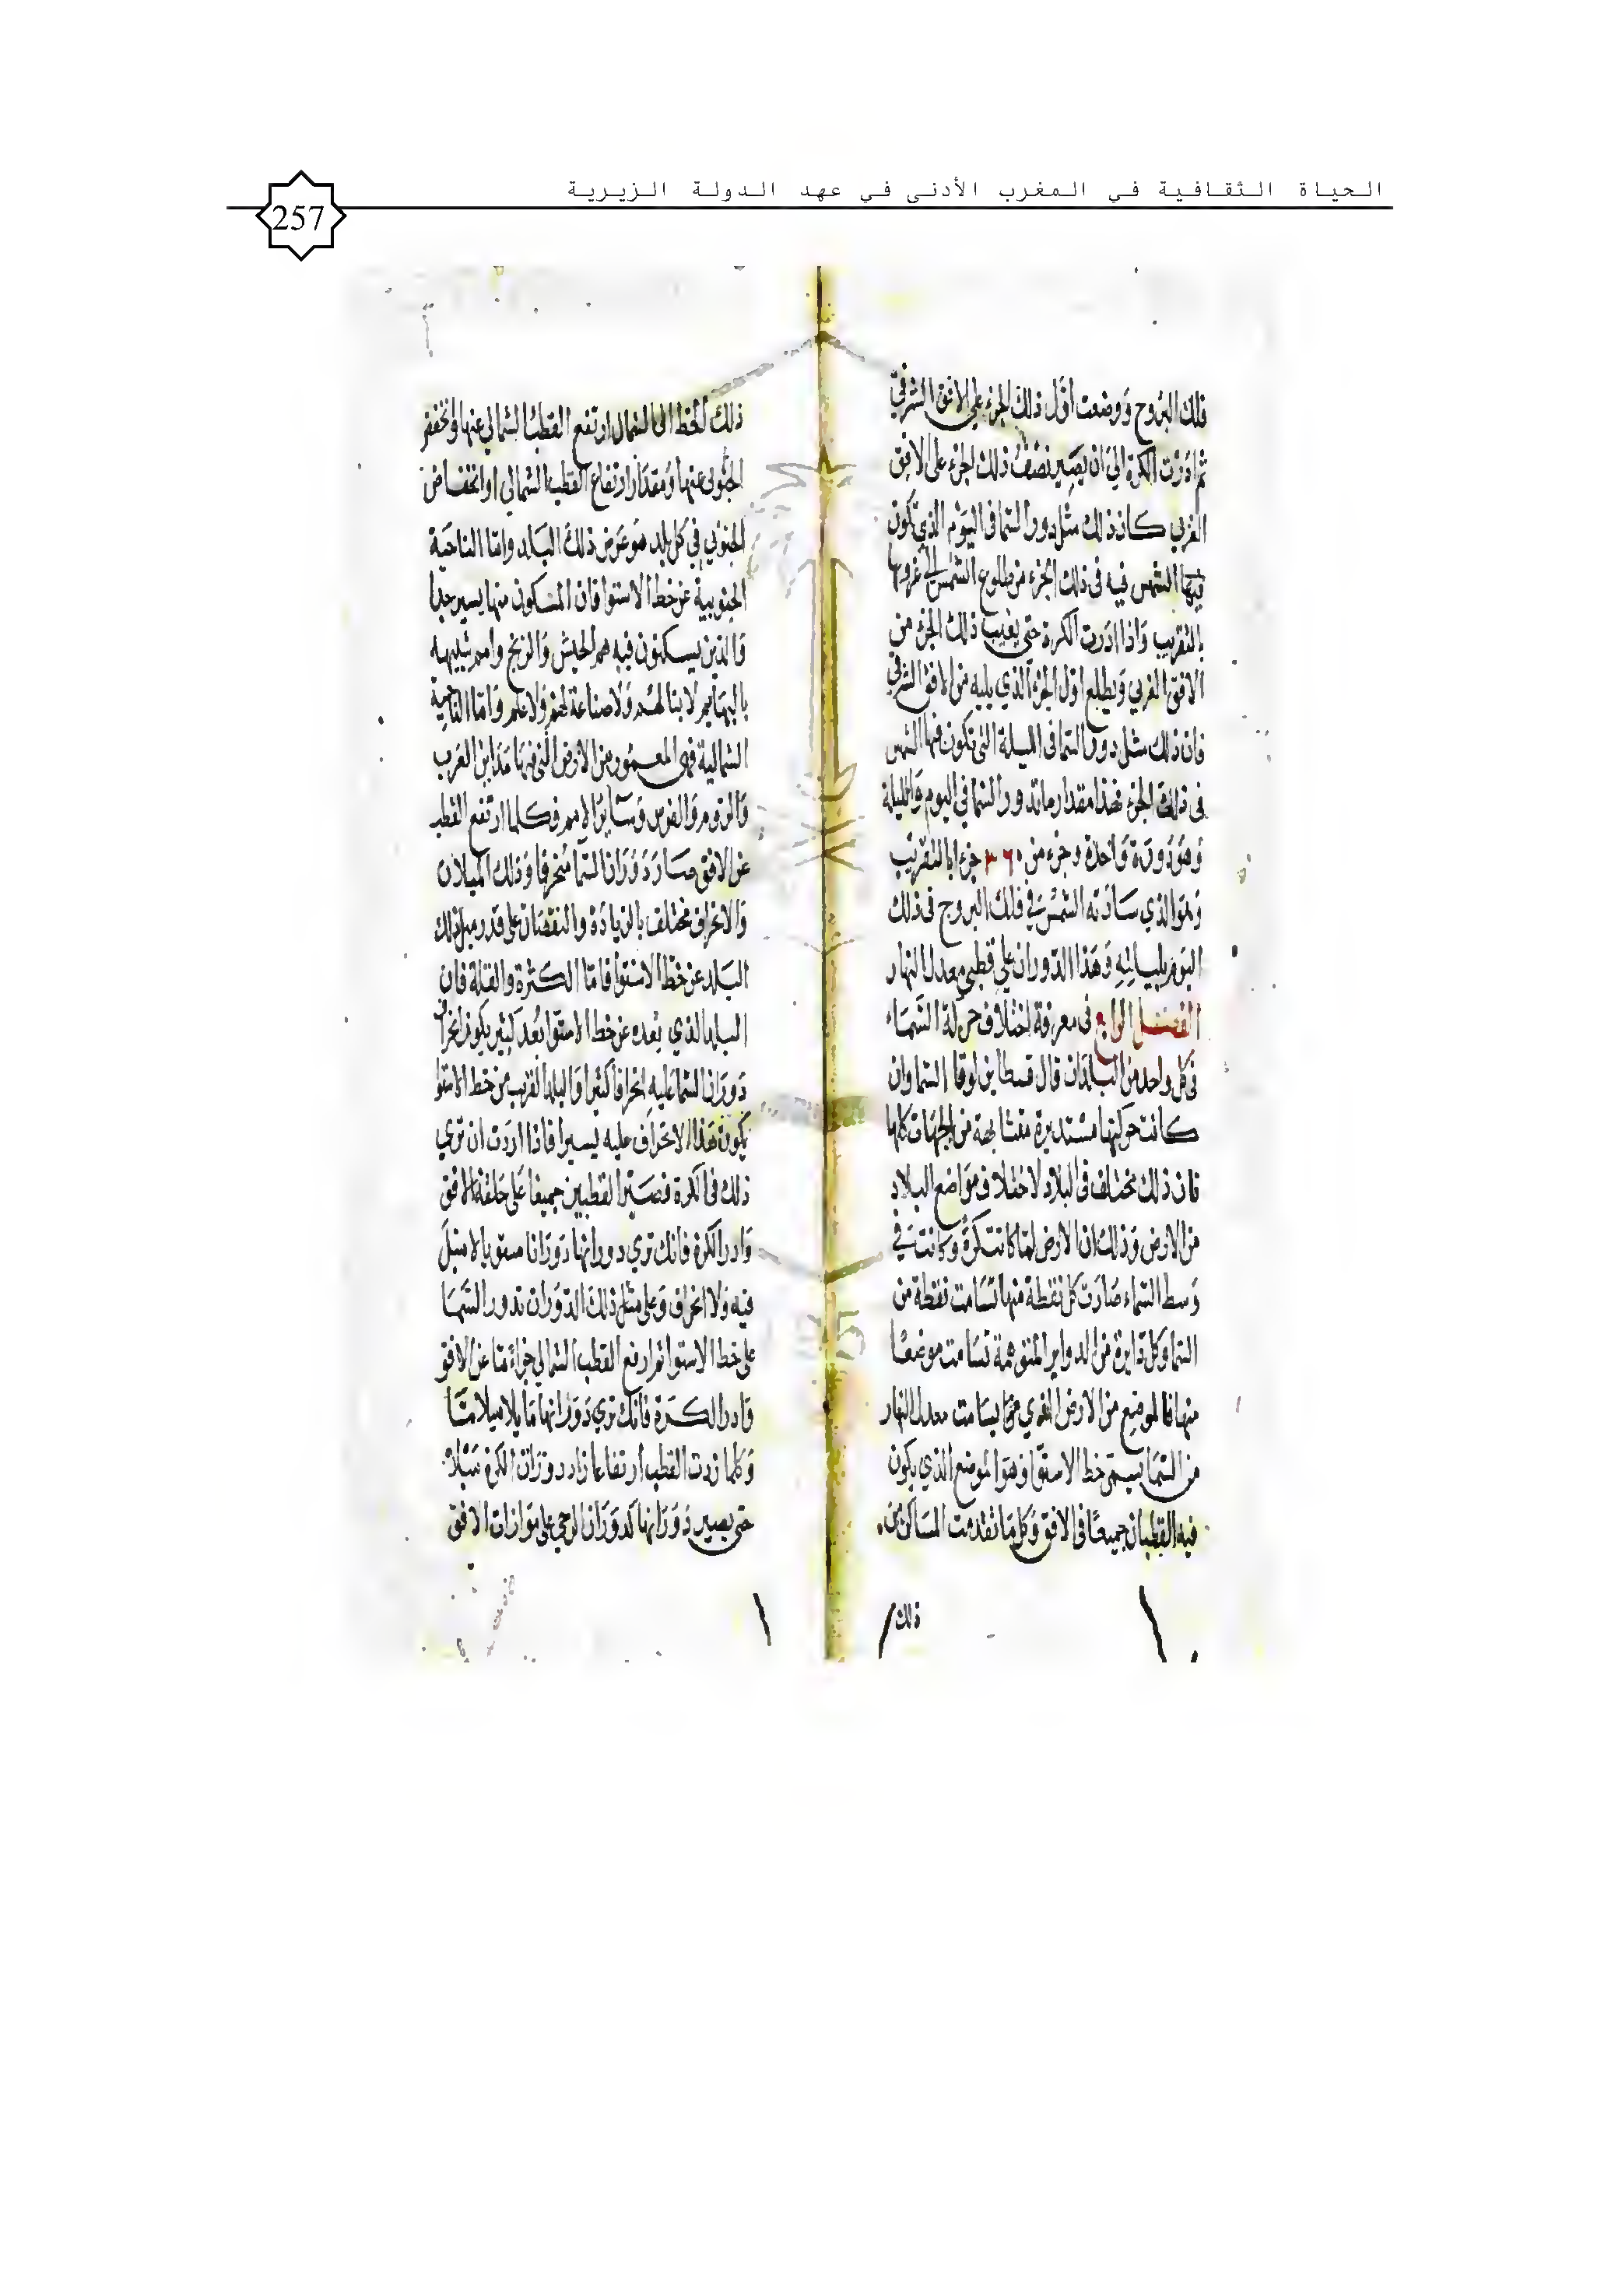 الحياة الثقافية في المغرب الأدنى في عهد الدولة الزيرية
257
فلك البروج ووضعت اول ذلك الجزء على الافق الشرقي
ثم ادرت الكرة الى ان يصير نصف ذلك الجزء على الافق
الغربي كان ذلك مثل دور السما في اليوم الذي تكون
فيها الشمس فيه في ذلك الجزء من طلوع الشمس الى غروبها
بالتقريب واذا ادرت الكرة حتى يغيب ذلك الجزء من
الافق الغربي ويطلع اول الجزء الذي يليه من الافق الشرقي
فان ذلك مثل دور السما في الليلة التي تكون فيها الشمس
في ذلك الجزء فهذا مقدار ما تدور السما في اليوم والليلة
وهو دورة واحدة وجزء من ٣٦٠ جزءا بالتقريب
وهو الذي سارته الشمس في فلك البروج في ذلك
اليوم بليلته وهذا الدوران على قطبي معدل النهار
الفصل الرابع في معرفة اختلاف حركة السماء
في كل واحد من البلدان قال قسطا بن لوقا السما وان
كانت حركتها مستديرة متشابهة من الجهات كلها
فان ذلك مختلف في البلاد لاختلاف مواضع البلاد
من الارض وذلك ان الارض لما كانت كرة وكانت في
وسط السماء صارت كل نقطة منها تسامت نقطة من
السما وكل دايرة من الدواير المتوهمة تسامت موضعا
منها فالموضع من الارض الذي يسامت معدل النهار
من السما يسمى خط الاستوا وهو الموضع الذي يكون
فيه القطبان جميعا في الافق وكل ما تقدمت المساكن عن
ذلك
ذلك الخط الى الشمال ارتفع القطب الشمالي عنها وانخفض
الجنوبي عنها ومقدار ارتفاع القطب الشمالي او انخفاض
الجنوبي في كل بلد هو عرض ذلك البلد واما الناحية
الجنوبية عن خط الاستوا فان المسكون منها يسير جدا
والذين يسكنون فيه هم الحبش والزنج وامم شبيهه
بالبهايم لا بنا لهم ولا صناعة لهم ولا علم واما الناحية
الشمالية فهي المعمور من الارض التي فيها مداين العرب
والروم والفرس وساير الامم فكلما ارتفع القطب
عن الافق صار دوران السما منحرفا وذلك الميلان
والانحراف مختلف بالزيادة والنقصان على قدر ميل ذلك
البلد عن خط الاستوا فاما الكثرة والقلة فان
البلد الذي بعده عن خط الاستوا بعد كثير يكون انحراف
دوران السما عليه انحرافا كثيرا والبلد القريب من خط الاستوا
يكون هذا الانحراف عليه يسيرا فاذا اردت ان ترى
ذلك في الكرة فصير القطبين جميعا على حلقة الافق
وادر الكرة فانك ترى دورانها دورانا مستويا لا ميل
فيه ولا انحراف وعلى مثل ذلك الدوران تدور السما
على خط الاستوا ثم ارفع القطب الشمالي جزاء ما عن الافق
وادر الكرة فانك ترى دورانها مايلا ميلا ما
وكلما زدت القطب ارتفاعا زاد دوران الكرة ميلا
حتى يصير دورانها كدوران الرحى على موازات الافق